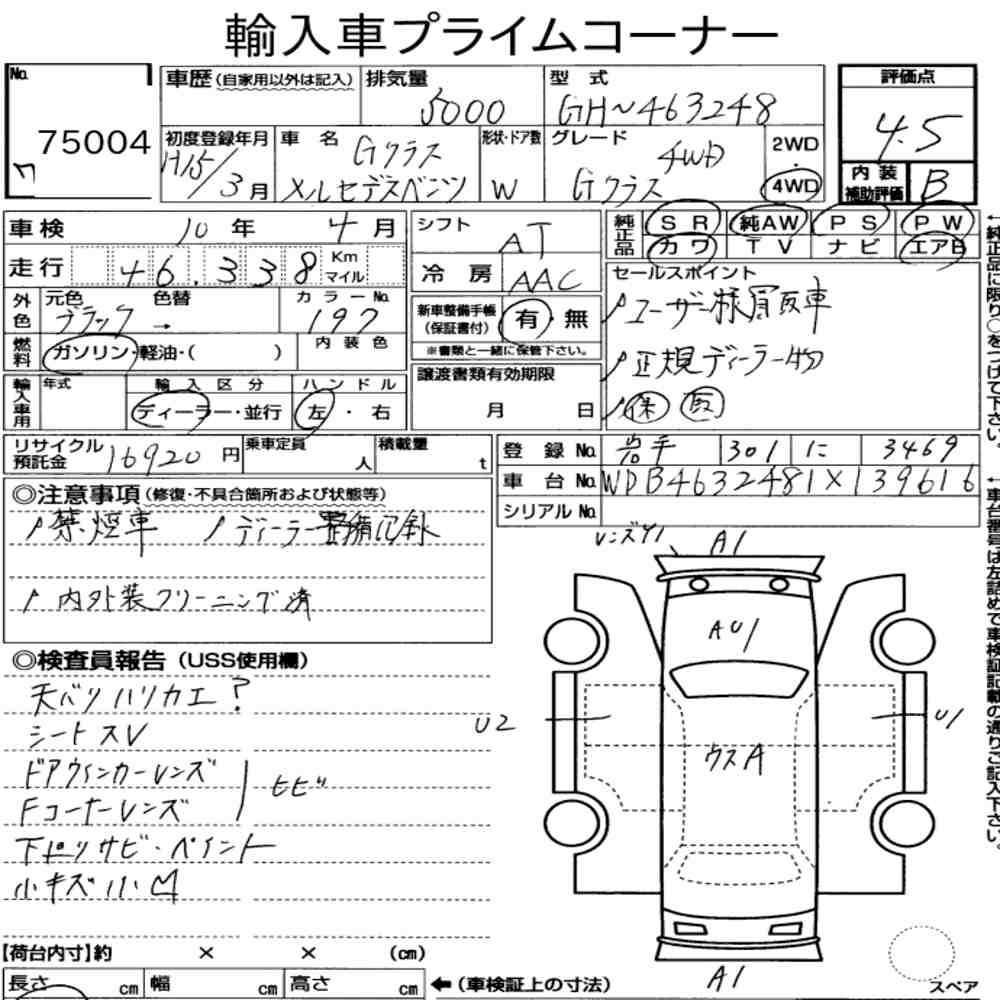 輸入車プライムコーナー
No. 75004
車歴(自家用以外は記入)
排気量 5000
型式 GH~463248
評価点 4.5
内装補助評価 B
初度登録年月 H15/3月
車名 Gクラス
メルセデスベンツ
形状・ドア数 W
グレード 4WD
Gクラス
2WD・4WD
車検 10年 4月
走行 46,338 Km マイル
シフト AT
冷房 AAC
純正品 SR 純AW PS PW
カワ TV ナビ エアB
外色 元色 ブラック 色替 →
カラーNo. 197
燃料 ガソリン・軽油・( )
内装色
新車整備手帳(保証書付) 有・無
※書類と一緒に保管下さい。
セールスポイント
ユーザー様買取車
正規ディーラー物
保 取
輸入車用 年式
輸入区分 ディーラー・並行
ハンドル 左・右
譲渡書類有効期限
月 日
リサイクル預託金 16920円
乗車定員 人
積載量 t
登録No. 岩手 301 に 3469
車台No. WDB4632481X139616
シリアルNo.
←純正品に限り○をつけて下さい。
←車台番号は左詰めで車検証記載の通りご記入下さい。
◎注意事項(修復・不具合箇所および状態等)
禁煙車 ディーラー整備記録
内外装クリーニング済
◎検査員報告(USS使用欄)
天バリハリカエ?
シートスV
ドアウィンカーレンズ
Fコーナーレンズ
ヒビ
下廻りサビ・ペイント
小キズ小凹
レンズY1
A1
AU1
U2
U1
ウスA
A1
スペア
【荷台内寸】約 × × (cm)
長さ cm 幅 cm 高さ cm
←(車検証上の寸法)